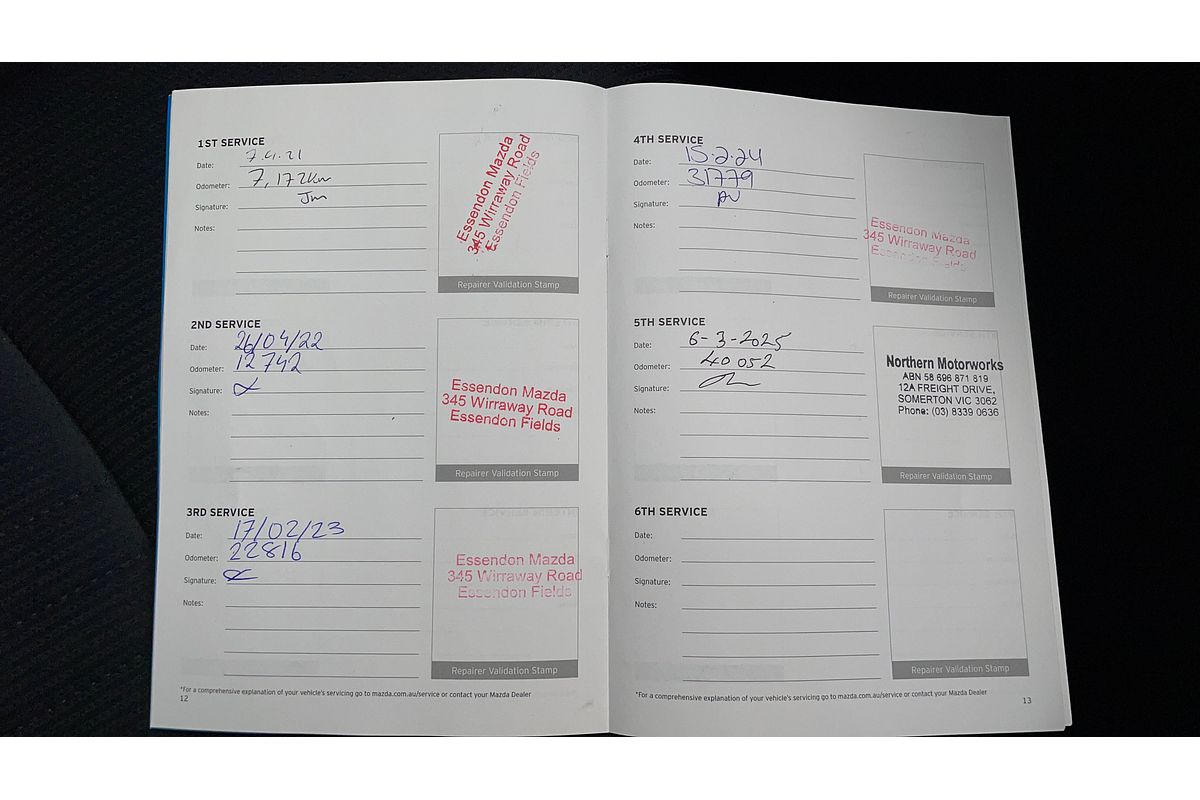 1ST SERVICE
Date: 7.4.21
Odometer: 7,172km
Signature: Jm
Notes:
Essendon Mazda
345 Wirraway Road
Essendon Fields
Repairer Validation Stamp
2ND SERVICE
Date: 26/04/22
Odometer: 12742
Signature:
Notes:
Essendon Mazda
345 Wirraway Road
Essendon Fields
Repairer Validation Stamp
3RD SERVICE
Date: 17/02/23
Odometer: 22816
Signature:
Notes:
Essendon Mazda
345 Wirraway Road
Essendon Fields
Repairer Validation Stamp
*For a comprehensive explanation of your vehicle's servicing go to mazda.com.au/service or contact your Mazda Dealer
12
4TH SERVICE
Date: 15.2.24
Odometer: 31779
Signature:
Notes:
Essendon Mazda
345 Wirraway Road
Essendon Fields
Repairer Validation Stamp
5TH SERVICE
Date: 6-3-2025
Odometer: 40052
Signature:
Notes:
Northern Motorworks
ABN 58 696 871 819
12A FREIGHT DRIVE,
SOMERTON VIC 3062
Phone: (03) 8339 0636
Repairer Validation Stamp
6TH SERVICE
Date:
Odometer:
Signature:
Notes:
Repairer Validation Stamp
*For a comprehensive explanation of your vehicle's servicing go to mazda.com.au/service or contact your Mazda Dealer
13